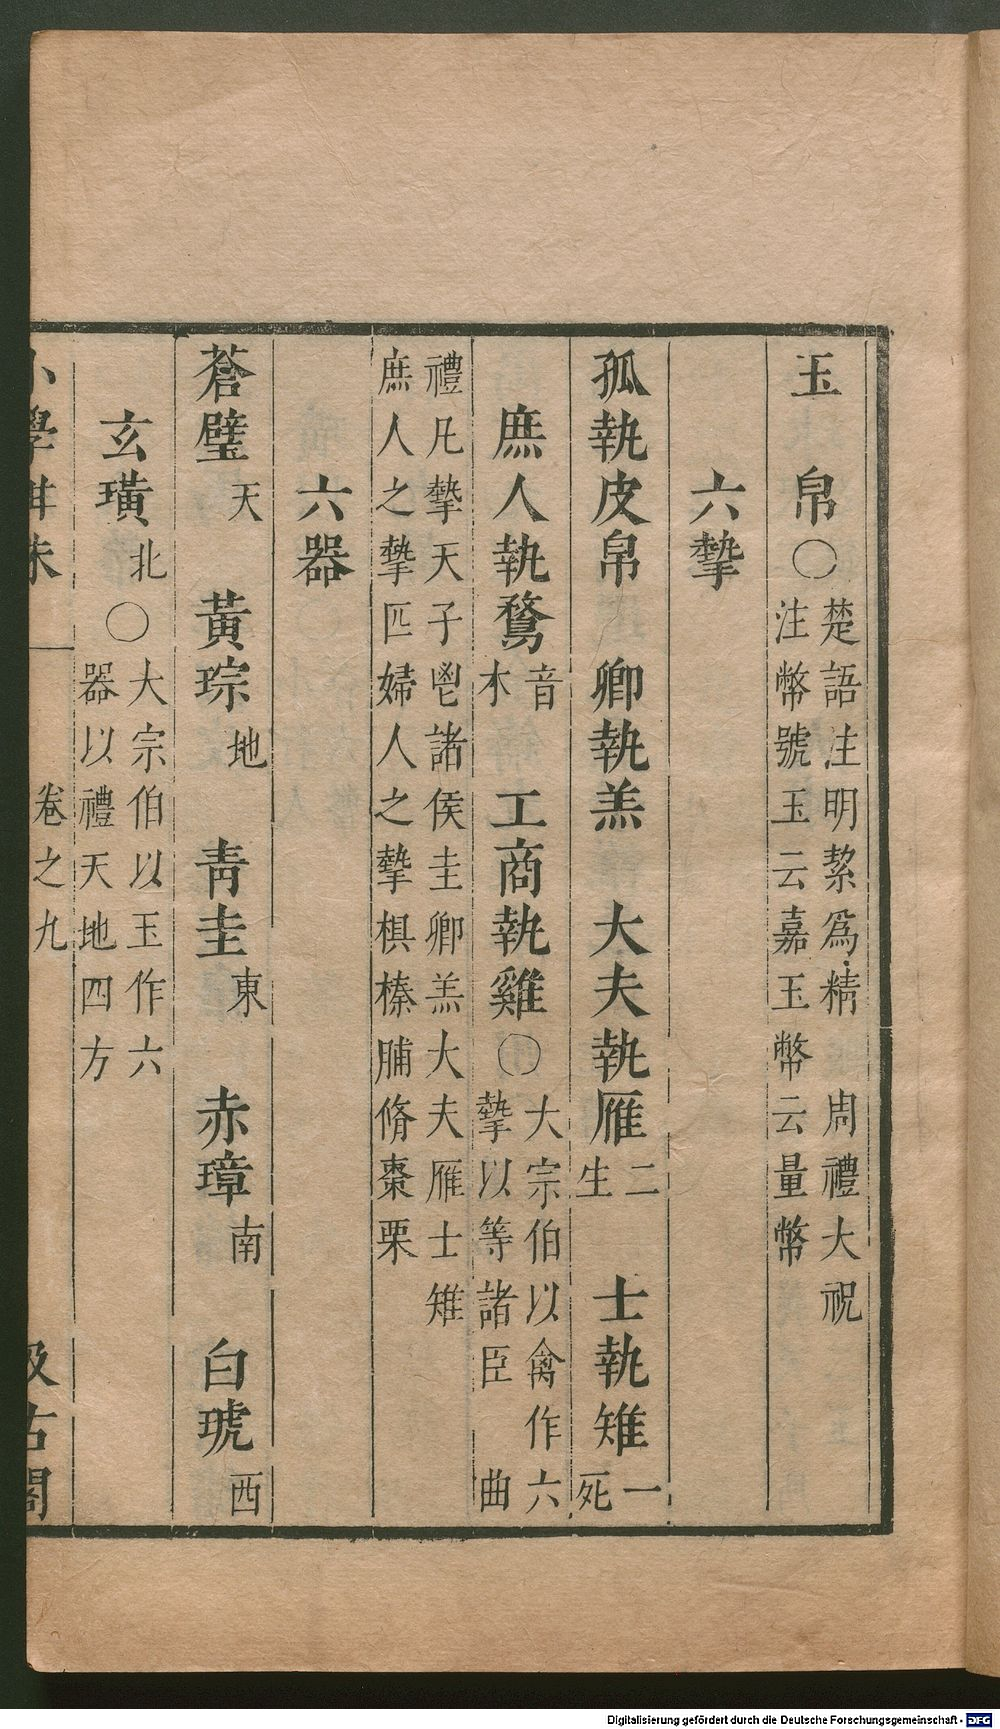 玉　帛○楚語注明絜爲精　周禮大祝
注幣號玉云嘉玉幣云量幣
六摯
孤執皮帛　卿執羔　大夫執雁二生　士執雉一死
庶人執鶩音木　工商執雞○大宗伯以禽作六
摯以等諸臣　曲
禮凡摯天子鬯諸侯圭卿羔大夫雁士雉
庶人之摯匹婦人之摯椇榛脯脩棗栗
六器
蒼璧天　黃琮地　靑圭東　赤璋南　白琥西
玄璜北○大宗伯以玉作六
器以禮天地四方
小學紺珠　卷之九　汲古閣
Digitalisierung gefördert durch die Deutsche Forschungsgemeinschaft - DFG